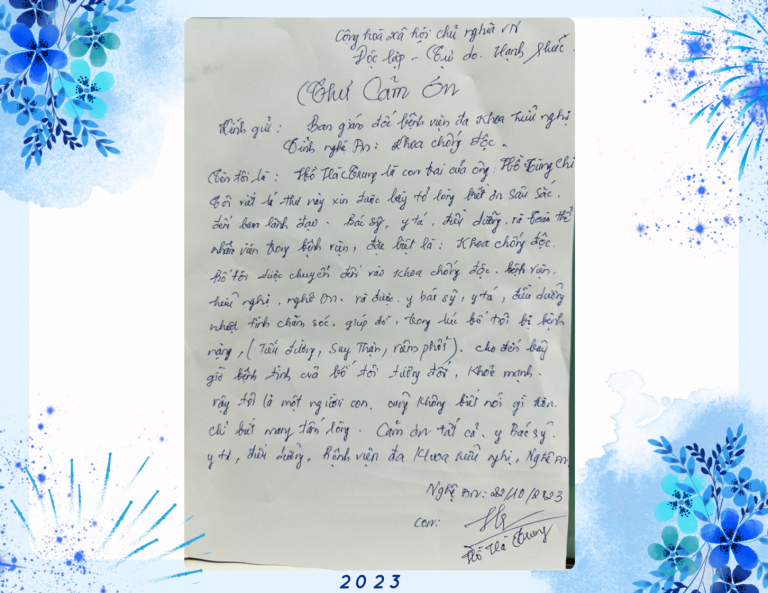 Cộng hoà xã hội chủ nghĩa VN
Độc lập - Tự do. Hạnh phúc.
Thư Cảm ơn
Kính gửi: Ban giám đốc bệnh viện đa khoa hữu nghị
Tỉnh nghệ An: Khoa chống độc.
Tên tôi là: Hồ Hà Trung là con trai của ông: Hồ Tùng Chi
Tôi viết lá thư này xin được bày tỏ lòng biết ơn sâu sắc.
đến ban lãnh đạo. Bác sỹ, y tá, điều dưỡng. và toàn thể
nhân viên trong bệnh viện, đặc biệt là: Khoa chống độc.
Bố tôi được chuyển đến vào khoa chống độc. bệnh viện.
hữu nghị. nghệ An. và được. y bác sỹ, y tá, điều dưỡng
nhiệt tình chăm sóc. giúp đỡ, trong lúc bố tôi bị bệnh
nặng, (Tiểu đường, Suy Thận, viêm phổi). cho đến bây
giờ bệnh tình của bố tôi tương đối, khoẻ mạnh.
vậy tôi là một người con. cũng không biết nói gì hơn.
chỉ biết mang tấm lòng. Cảm ơn tất cả. y Bác sỹ.
y tá, điều dưỡng, Bệnh viện đa khoa hữu nghị, Nghệ An.
Nghệ An: 22/10/2023
con:
Hồ Hà Trung
2023